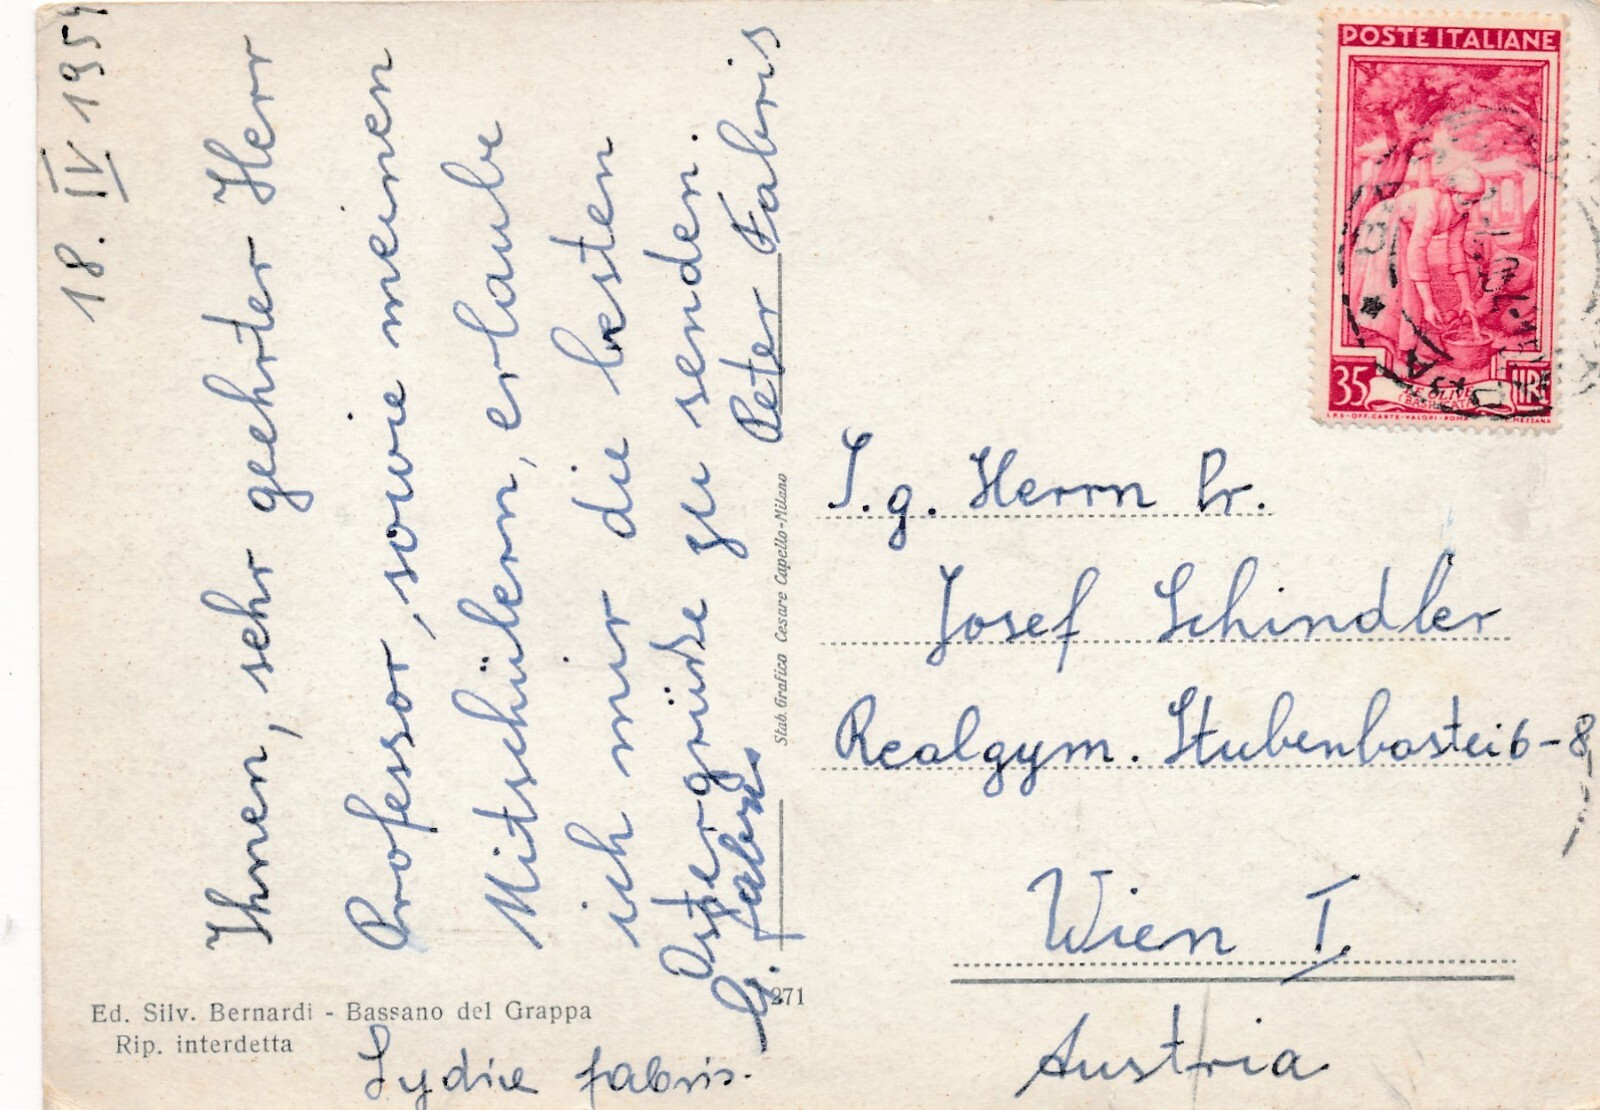 18. IV 1954
Ihnen, sehr geehrter Herr
Professor, sowie meinen
Mitschülern, erlaube
ich mir die besten
Ostergrüße zu senden.
Peter Fabris
G. Fabris
Lydia Fabris.
Ed. Silv. Bernardi - Bassano del Grappa
Rip. interdetta
271
Stab. Grafico Cesare Capello - Milano
POSTE ITALIANE
35 LIRE
S.g. Herrn Pr.
Josef Schindler
Realgym. Stubenbastei 6-8
Wien I.
Austria